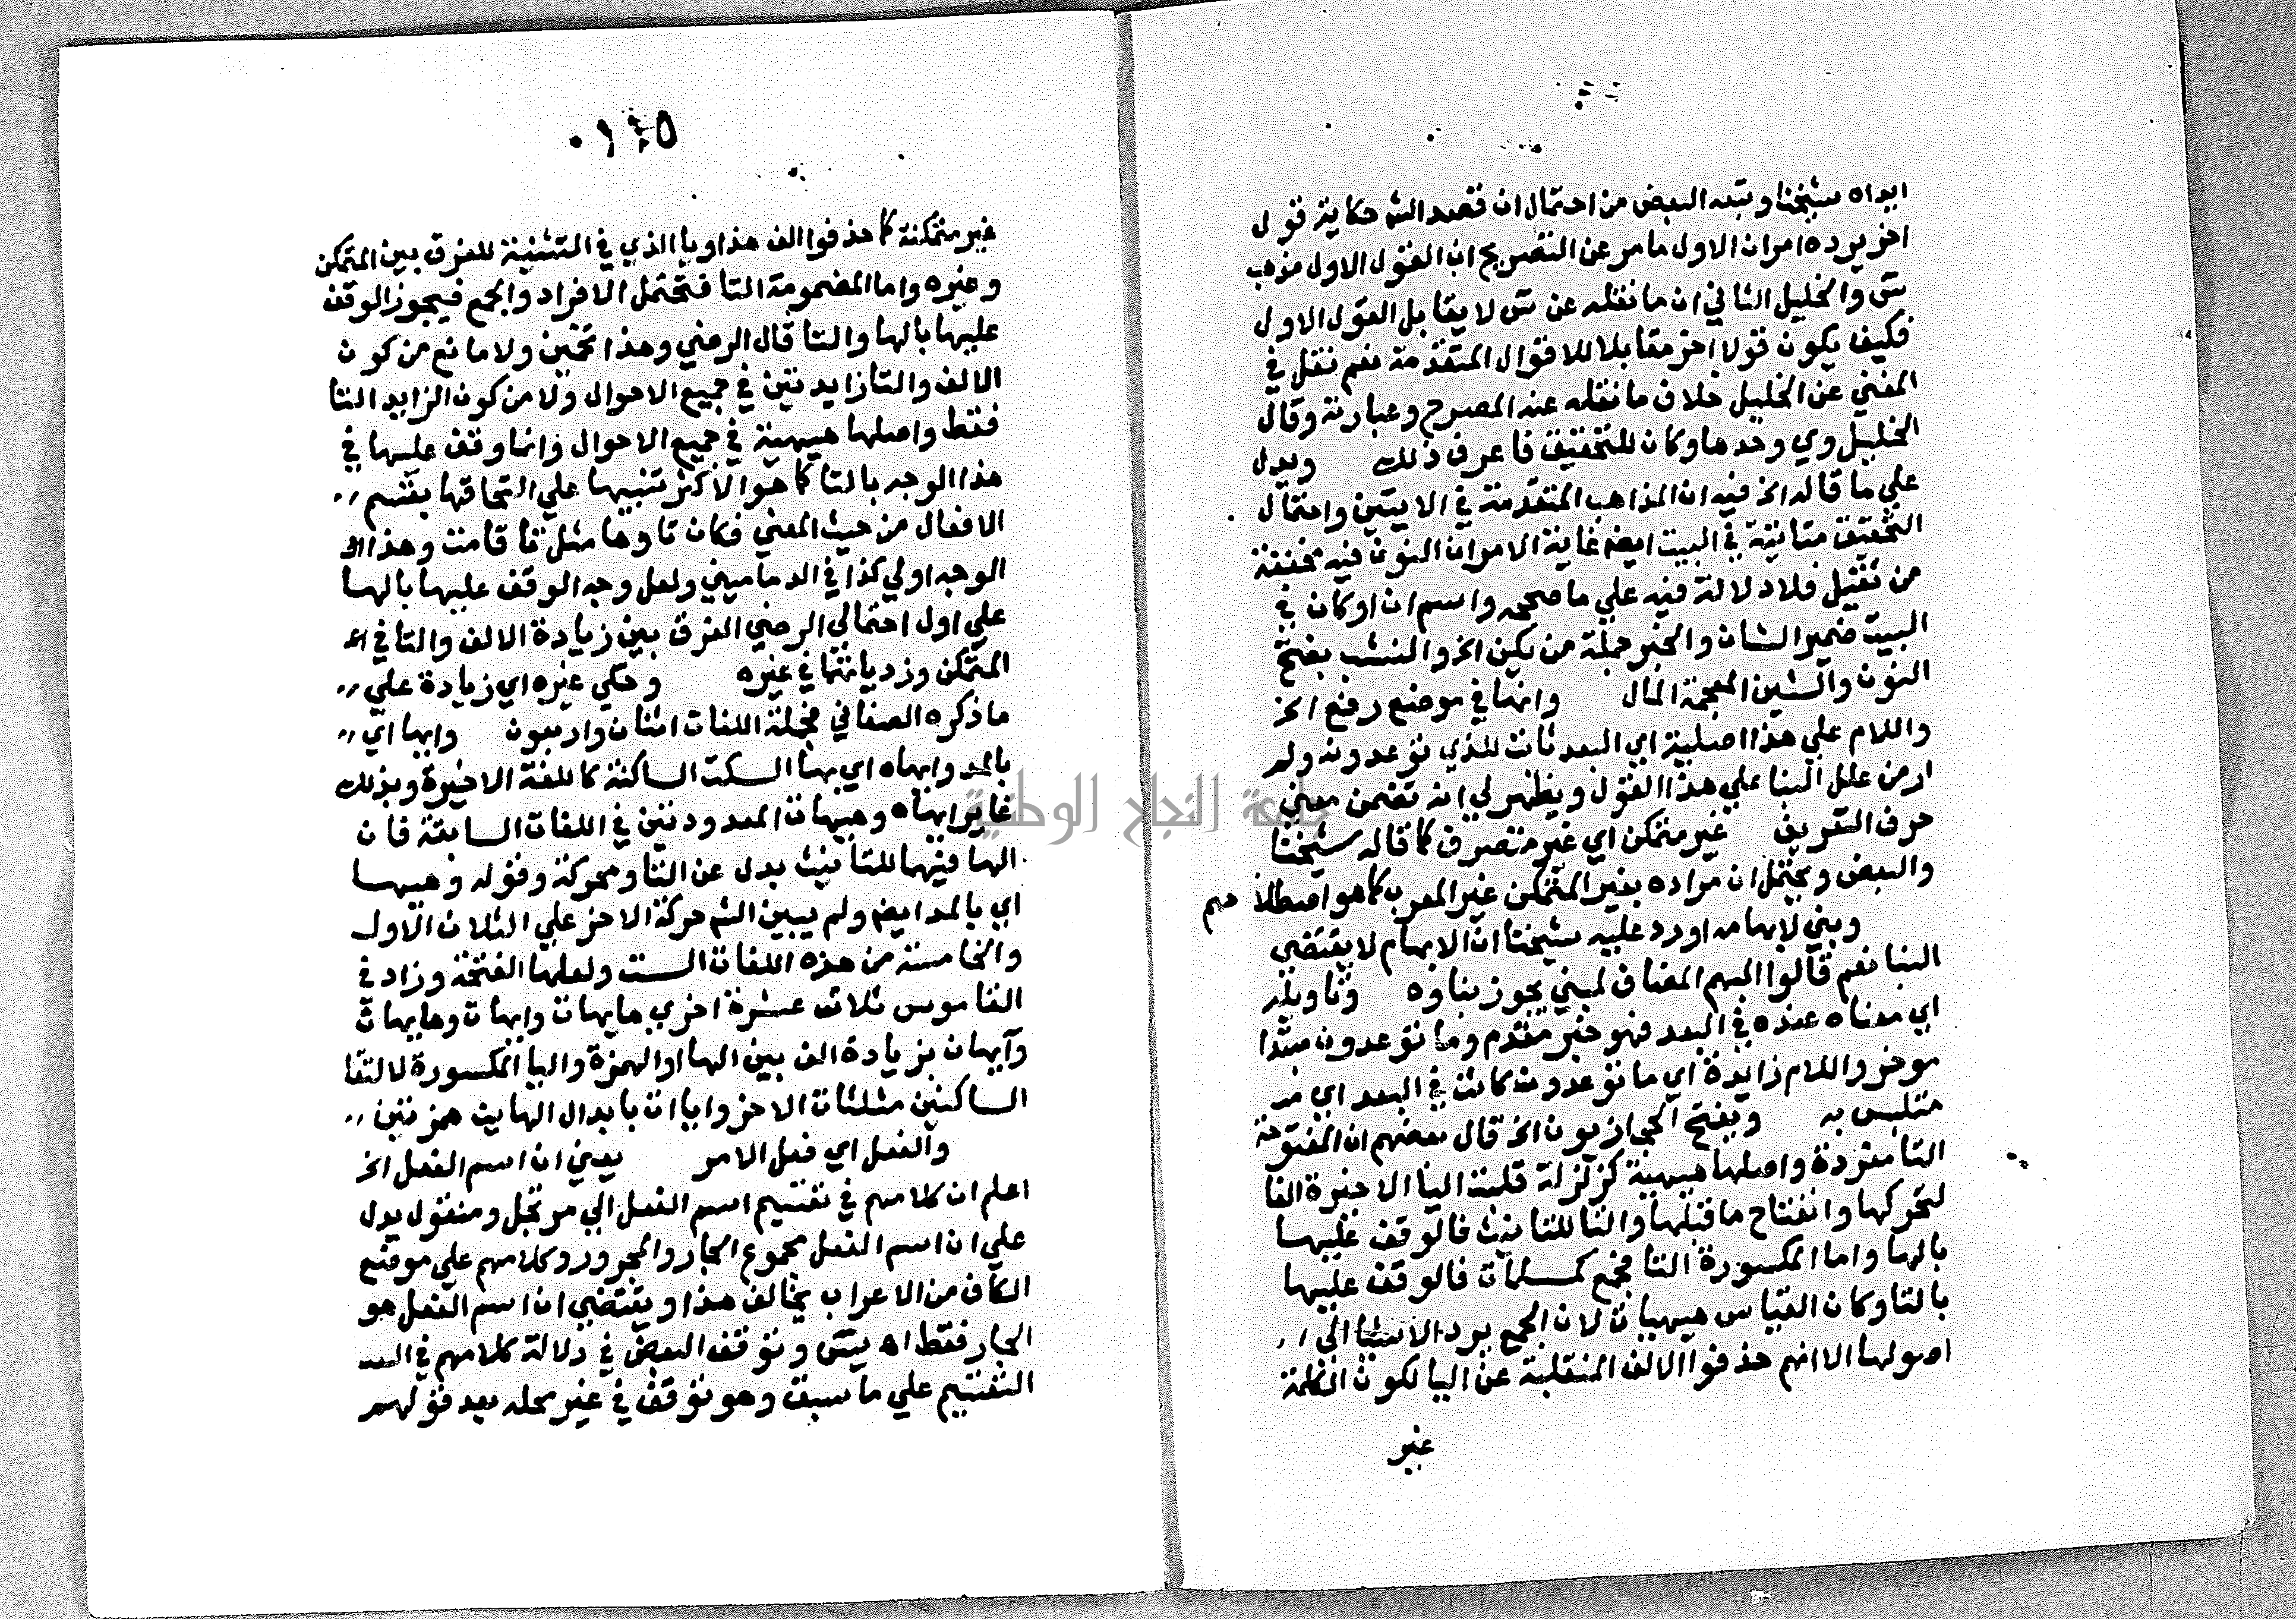 ابداه شيخنا وتبعه البعض من احتمال ان قصد الشم حكاية قول
اخر يرده امران الاول ما مر عن التصريح ان القول الاول مذهب
س والخليل الثاني ان ما نقله عن س لا يقابل القول الاول
فكيف يكون قولا اخر مقابلا للاقوال المتقدمة نعم نقل في
المغني عن الخليل خلاف ما نقله عنه المصرح وعبارته وقال
الخليل وي وحدها وكان للتحقيق فاعرف ذلك ويدل
علي ما قاله الخ فيه ان المذاهب المتقدمة في الايتين واحتمال
التحقيق متاتية في البيت ايضم غاية الامر ان النون فيه مخففة
من ثقيل فلا دلالة فيه علي ما صححه واسم ان او كان في
البيت ضمير الشان والخبر جملة من يكن الخ والنشب بفتح
النون والشين المعجمة المال وانها في موضع رفع الخ
واللام علي هذا اصلية اي البعد ثابت للذي توعدون ولم
ار من علل البنا علي هذا القول ويظهر لي انه تضمن معني
حرف التعريف غير متمكن اي غير متصرف كما قاله شيخنا
والبعض ويحتمل ان مراده بغير المتمكن غير المعرب كما هو اصطلاحهم
وبني لابهامه اورد عليه شيخنا ان الابهام لا يقتضي
البنا نعم قالوا المبهم المضاف لمبني يجوز بناوه وتاويله
اي معناه عنده في البعد فهو خبر مقدم وما توعدون مبتدا
موخر واللام زايدة اي ما توعدون كائن في البعد اي
متلبس به ويفتح الحجازيون الخ قال بعضهم ان المفتوحة
التا مفردة واصلها هيهية كزلزلة قلبت اليا الاخيرة الفا
لتحركها وانفتاح ما قبلها والتا للتانيث فالوقف عليها
بالها واما المكسورة التا فجمع كمسلمات فالوقف عليها
بالتا وكان القياس هيهيات لان الجمع يرد الاشيا الي
اصولها الا انهم حذفوا الالف المنقلبة عن اليا لكون الكلمة
غير
١٢٥
غير متمكنة كما حذفوا الف هذا ويا الذي في التثنية للفرق بين المتمكن
وغيره واما المضمومة التا فتحتمل الافراد والجمع فيجوز الوقف
عليها بالها والتا قال الرضي وهذا تخمين ولا مانع من كون
الالف والتا زايدتين في جميع الاحوال ولا من كون الزايد التا
فقط واصلها هيهية في جميع الاحوال وانما وقف عليها في
هذا الوجه بالتا كما هو الاكثر تنبيها علي التحاقها بقسم
الافعال من حيث المعني فكان تاوها مثل تا قامت وهذا
الوجه اولي كذا في الدماميني ولعل وجه الوقف عليها بالها
علي اول احتمالي الرضي الفرق بين زيادة الالف والتا في
المتمكن وزديادتهما في غيره وحكي غيره اي زيادة علي
ما ذكره الصغاني فجملة اللغات اثنان واربعون وايها اي
بالمد وايهاه اي بها السكت الساكنة كاللغة الاخيرة وبذلك
غاير ايهاه وهيهات المعدودتين في اللغات السابقة فان
الها فيهما للتانيث بدل عن التا ومحركة وقوله وهيها
اي بالمد ايضم ولم يبين الشم حركة الاخر علي الثلاث الاول
والخامسة من هذه اللغات الست ولعلها الفتحة وزاد في
القاموس ثلاث عشرة اخري هايهات وايهات وهايهات
وآيهان بزيادة الف بين الها او الهمزة واليا المكسورة لالتقا
الساكنين مثلثات الاخر وايات بابدال الهايين همزتين
والفعل اي فعل الامر يعني ان اسم الفعل الخ
اعلم ان كلامهم في تقسيم اسم الفعل الي مرتجل ومنقول يدل
علي ان اسم الفعل مجموع الجار والمجرور وكلامهم علي موضع
الكاف من الاعراب يخالف هذا ويقتضي ان اسم الفعل هو
الجار فقط اه يس وتوقف البعض في دلالة كلامهم في
التقسيم علي ما سبق وهو توقف في غير محله بعد قولهم
جامعة النجاح الوطنية